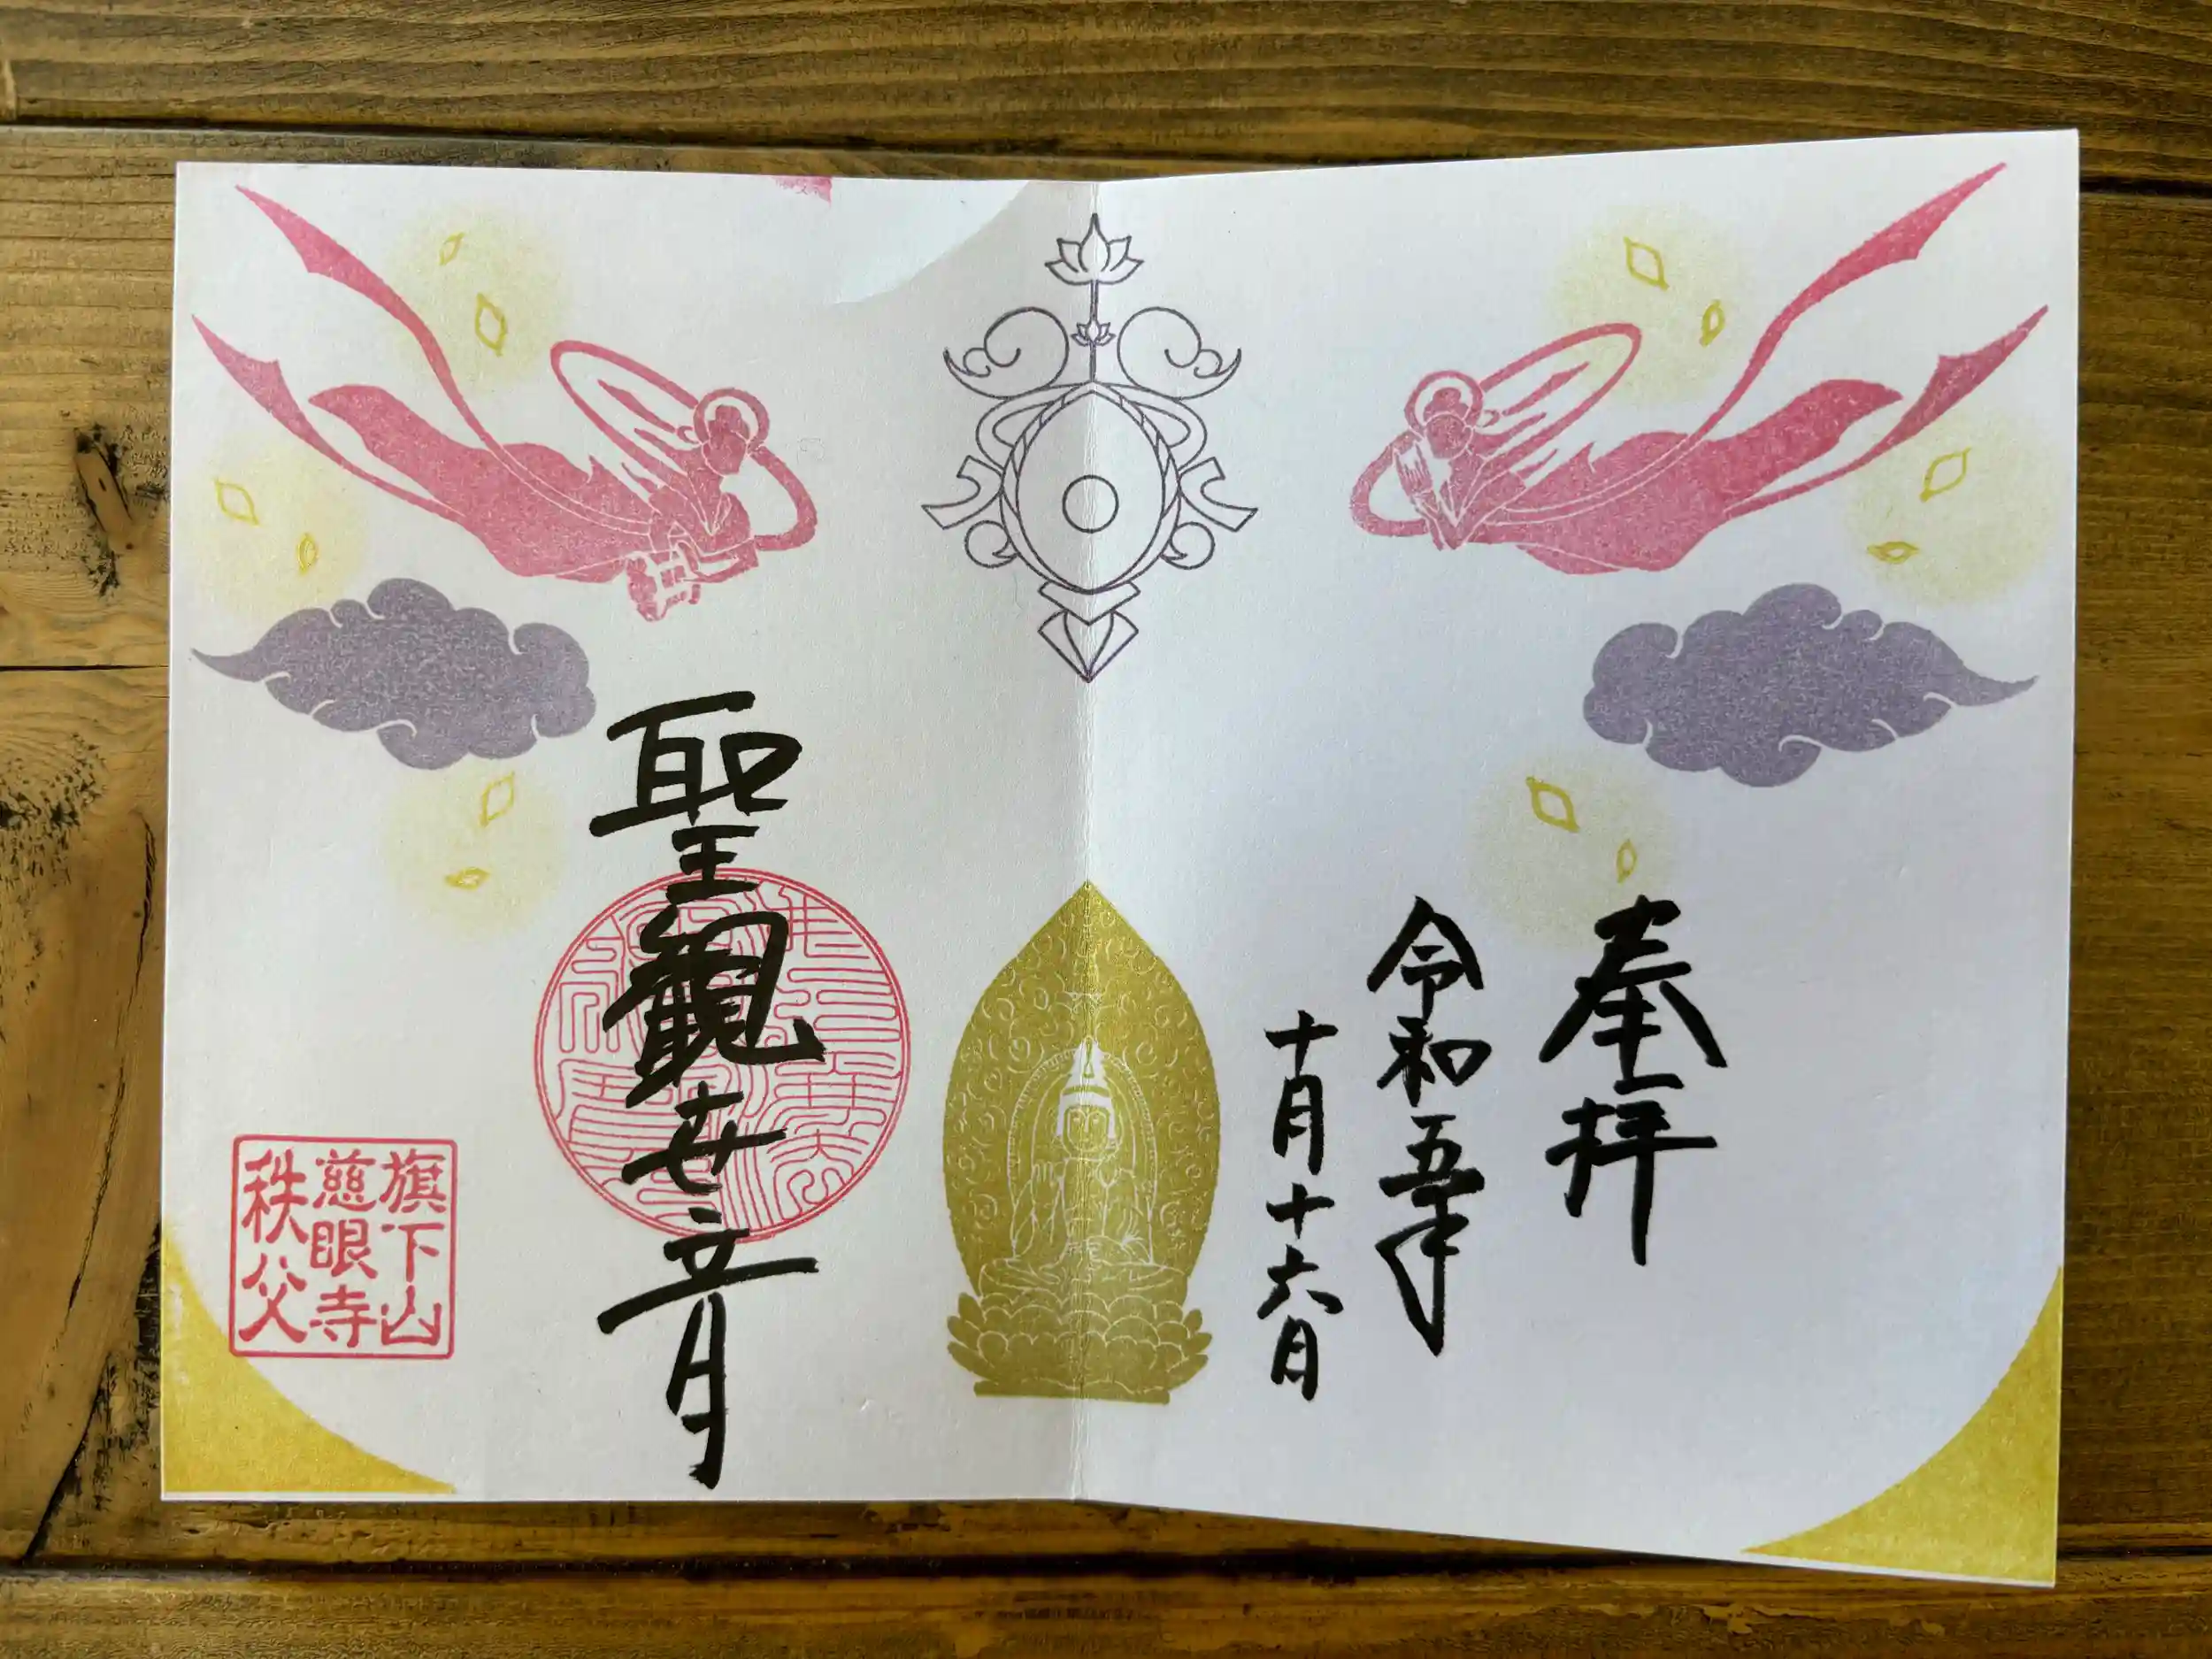 奉拝
令和五年
十月十六日
聖観世音
旗下山
慈眼寺
秩父